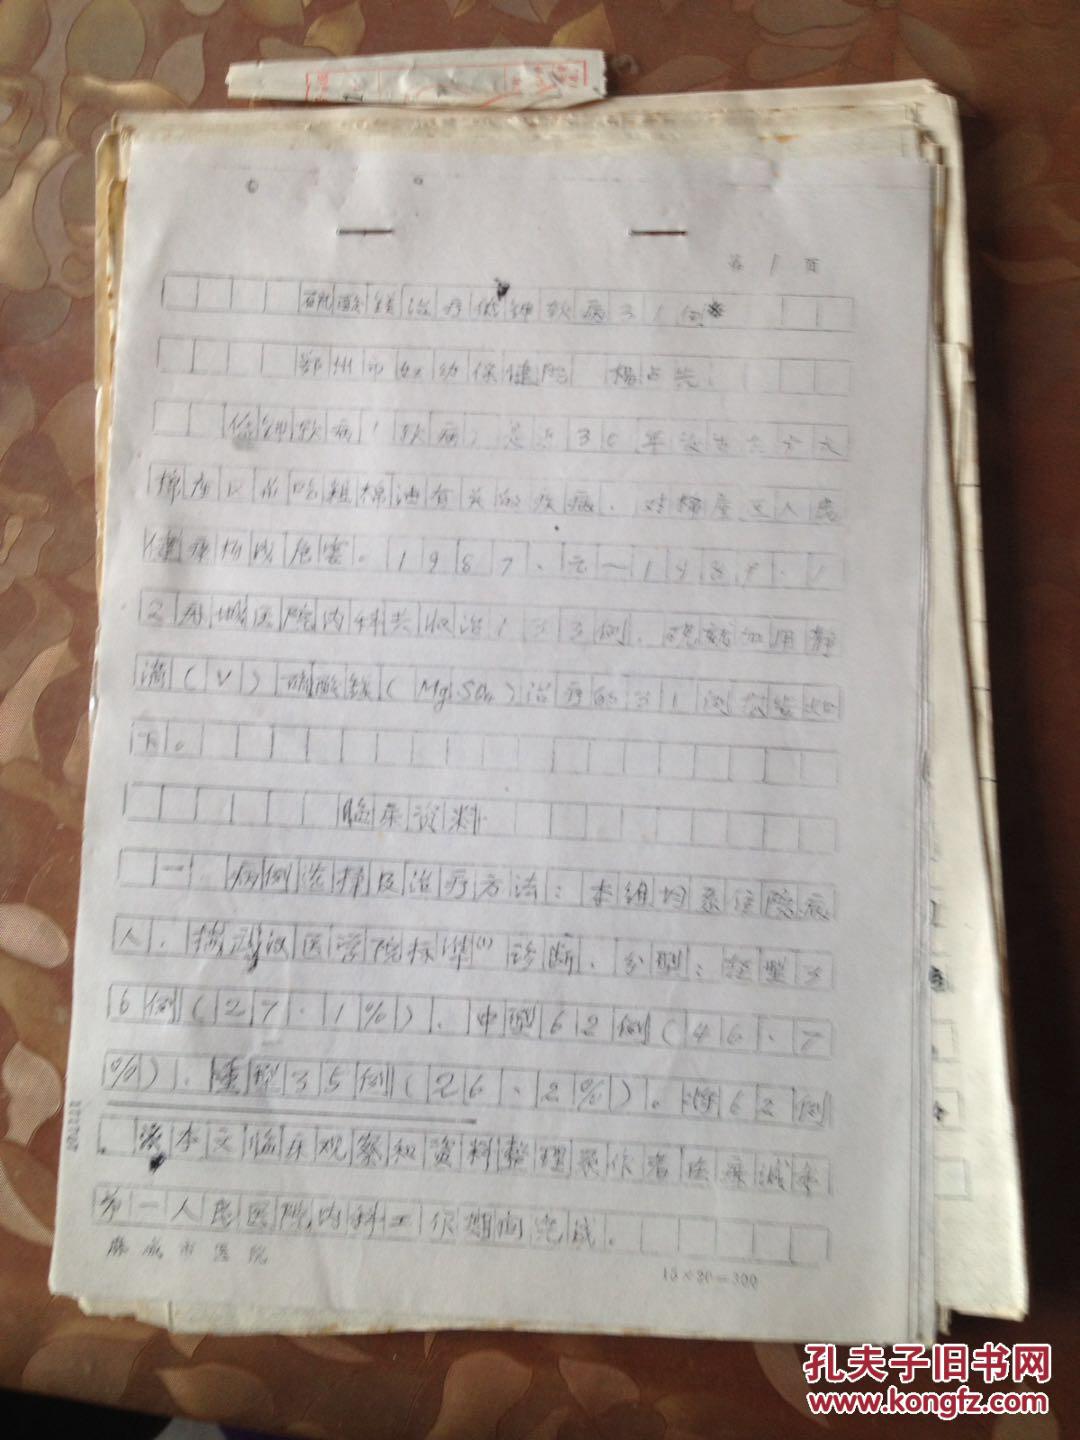 第1页
硫酸镁治疗低钾软病31例*
鄂州市妇幼保健院 杨占先
低钾软病(软病)是近30年发生在
棉产区 粗棉油有关的疾病。对棉产区人民
健康 危害。1987、元—1989.1
2麻城医院内科共收治133例,现就加用静
滴(V)硫酸镁(MgSO4)治疗的31例 如
下。
临床资料
一 病例选择及治疗方法:本组均系住院病
人。按武汉医学院标准(1)诊断、分型:轻型3
6例(27.1%)、中型62例(46.7
%)、重型35例(26.2%)。将62例
本文临床观察和资料整理系作者在麻城市
第一人民医院内科工作期间完成。
麻城市医院
15×20=300
孔夫子旧书网
www.kongfz.com